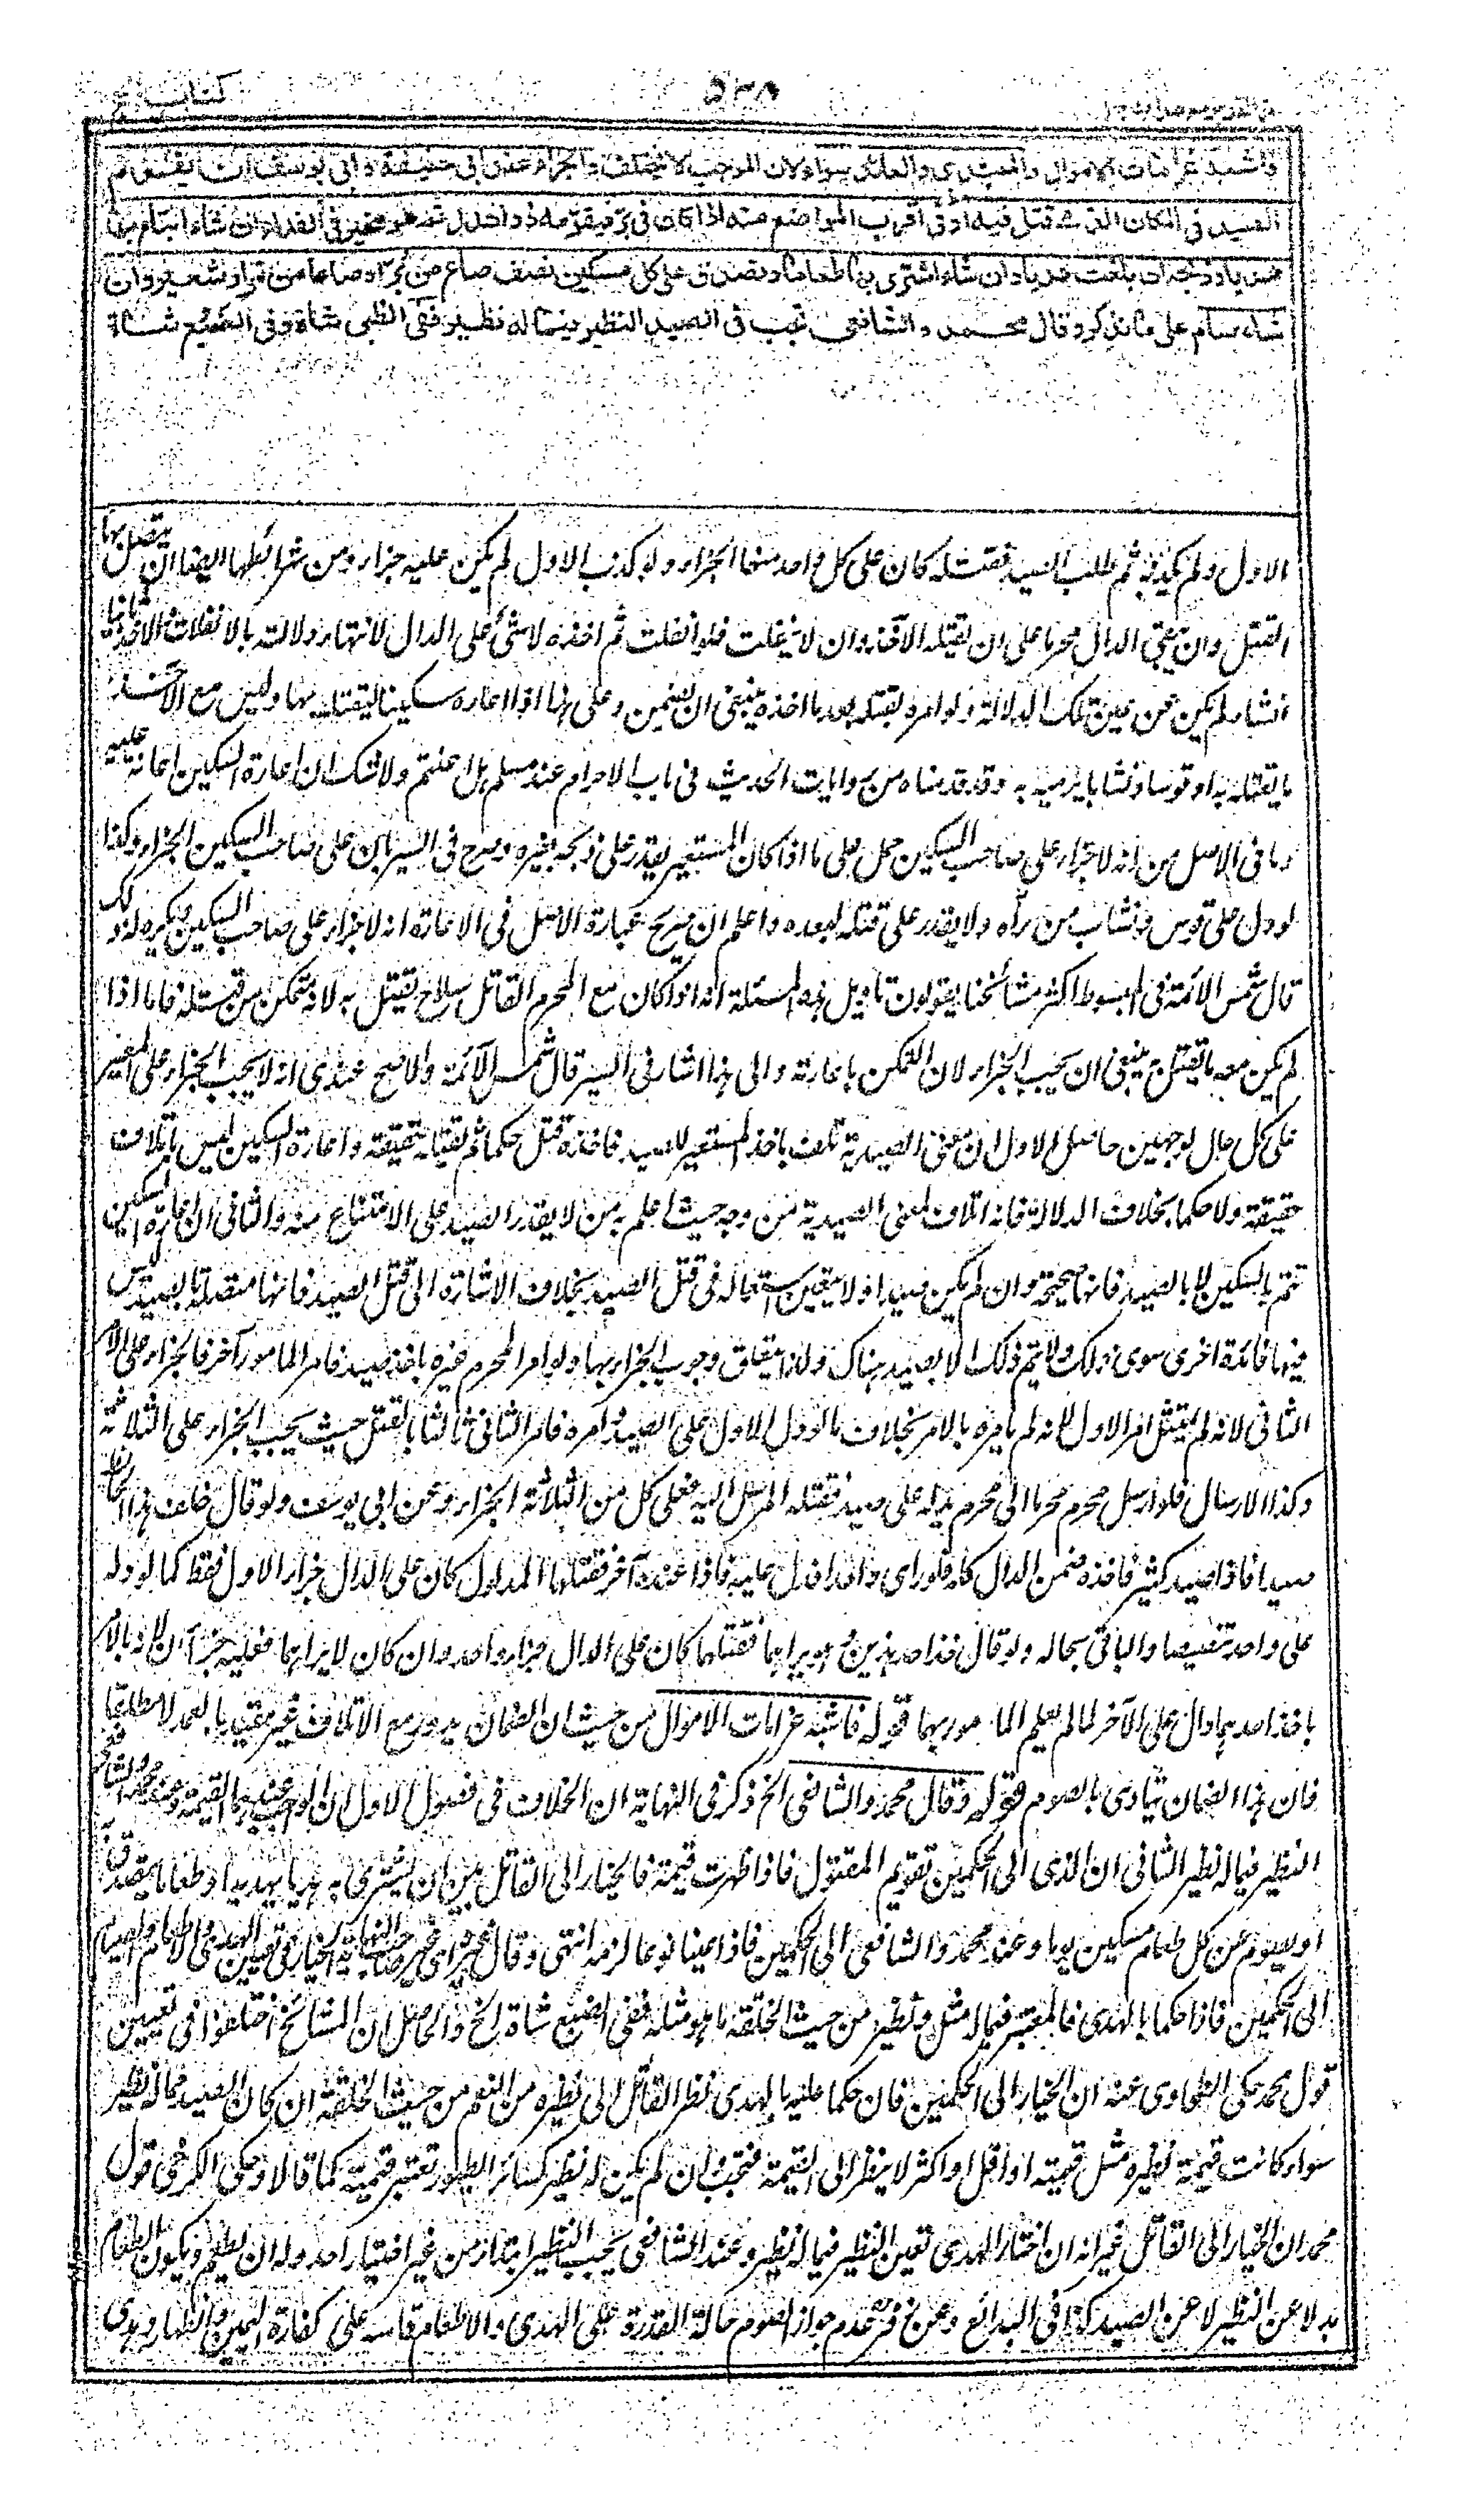 كتاب الحج
٥٣٨
فاشبه غرامات الاموال والمبتدى والعائد سواء لان الموجب لا يختلف والجزاء عند ابى حنيفة وابى يوسف ان يقوم
الصيد فى المكان الذى قتل فيه او فى اقرب المواضع منه اذا كان فى بر فيقومه ذوا عدل ثم هو مخير فى الفداء ان شاء ابتاع بها
هديا وذبحه ان بلغت هديا وان شاء اشترى بها طعاما وتصدق على كل مسكين نصف صاع من بر او صاعا من تمر او شعير وان
شاء صام على ما نذكر وقال محمد والشافعى تجب فى الصيد النظير فيما له نظير ففى الظبى شاة وفى الضبع شاة
الاول ولم يكذبه ثم طلب الصيد فقتله كان على كل واحد منهما الجزاء ولو كذب الاول لم يكن عليه جزاء ومن شرائطها ايضا ان يتصل بها
القتل وان يبقى الدال محرما على ان يقتله الآخذ وان لا ينفلت فلو انفلت ثم اخذه لا شئ على الدال لانتهاء دلالته بالانفلات والاخذ ثانيا
انشاء لم يكن عن عين تلك الدلالة ولو امره بقتله بعد ما اخذه ينبغى ان يضمن وعلى هذا اذا اعاره سكينا ليقتله بها وليس مع الآخذ
ما يقتله به او قوسا ونشابا يرميه به وقد قدمناه من روايات الحديث فى باب الاحرام عند مسلم هل اعنتم ولا شك ان اعارة السكين اعانة عليه
وما فى الاصل من انه لا جزاء على صاحب السكين حمل على ما اذا كان المستعير يقدر على ذبحه بغيره وصرح فى السير بان على صاحب السكين الجزاء وكذا
لو دل على قوس ونشاب من رآه ولا يقدر على قتله لبعده واعلم ان صريح عبارة الاصل فى الاعارة انه لا جزاء على صاحب السكين ويكره له ذلك
قال شمس الائمة فى المبسوط اكثر مشائخنا يقولون تاويل هذه المسئلة انه اذا كان مع المحرم القاتل سلاح يقتل به لانه متمكن من قتله فاما اذا
لم يكن معه ما يقتل به ينبغى ان يجب الجزاء لان التمكن باعارته والى هذا اشار فى السير قال شمس الآئمة والاصح عندى انه لا يجب الجزاء على المعير
على كل حال لوجهين حاصل الاول ان معنى الصيدية تلف باخذ المستعير للصيد فاخذه قتل حكما ثم يقتله حقيقة واعارة السكين ليس باتلاف
حقيقة ولا حكما بخلاف الدلالة فانه اتلاف لمعنى الصيدية من وجه حيث اعلم به من لا يقدر الصيد على الامتناع منه والثانى ان اعارة السكين
تتم بالسكين لا بالصيد فانها صحيحة وان لم يكن صيدا ولا يتعين استعماله فى قتل الصيد بخلاف الاشارة الى قتل الصيد فانها متصلة بالصيد ليس
فيها فائدة اخرى سوى ذلك ولا يتم ذلك الا بصيد هناك ولذا يتعلق وجوب الجزاء بها ولو امر المحرم غيره باخذ صيد فامر المامور آخر فالجزاء على الآمر
الثانى لانه لم يمتثل امر الاول لانه لم يامره بالامر بخلاف ما لو دل الاول على الصيد وامره فامر الثانى ثالثا بالقتل حيث يجب الجزاء على الثلاثة
وكذا الارسال فلو ارسل محرم محرما الى محرم يدله على صيد فقتله المرسل اليه فعلى كل من الثلاثة الجزاء وعن ابى يوسف ولو قال خلف هذا الحائط
صيد فاذا صيد كثير فاخذه ضمن الدال كله فلو راى واحدا فدل عليه فاذا عنده آخر فقتلهما المدلول كان على الدال جزاء الاول فقط كما لو دله
على واحد تنصيصا والباقى بحاله ولو قال خذ احد هذين وهو يراهما فقتلهما كان على الدال جزاء واحد وان كان لا يراهما فعليه جزاآن لانه بالامر
باخذ احدهما دال على الآخر لما لم يعلم المامور بهما قوله فاشبه غرامات الاموال من حيث ان الضمان يدور مع الاتلاف غير مقيد بالعمد لا مطلقا
فان هذا الضمان يتادى بالصوم قوله وقال محمد والشافعى الخ ذكر فى النهاية ان الخلاف فى فصول الاول ان الواجب عندهما القيمة وعند محمد والشافعى
النظير فيما له نظير الثانى ان الذى الى الحكمين تقويم المقتول فاذا ظهرت قيمة فالخيار الى القاتل بين ان يشترى به هديا يهديه او طعاما يتصدق به
او يصوم عن كل طعام مسكين يوما وعند محمد والشافعى الى الحكمين فاذا عينا نوعا لزمه انتهى وقال الخيار فى تعيين الهدى والاطعام والصيام
الى الحكمين فاذا حكما بالهدى فالمعتبر فيما له مثل ونظير من حيث الخلقة ما هو مثله ففى الضبع شاة الخ والحاصل ان المشائخ اختلفوا فى تعيين
قول محمد حكى الطحاوى عنه ان الخيار الى الحكمين فان حكما عليه بالهدى نظر القاتل الى نظيره من النعم من حيث الخلقة ان كان الصيد مما له نظير
سواء كانت قيمة نظيره مثل قيمته او اقل او اكثر لا ينظر الى القيمة فتجب وان لم يكن له نظير كسائر الطيور تعتبر قيمته كما قالا وحكى الكرخى قول
محمد ان الخيار الى القاتل غير انه ان اختار الهدى تعين النظير فيما له نظير وعند الشافعى يجب النظير ابتداء من غير اختيار احد وله ان يطعم ويكون الطعام
بدلا عن النظير لا عن الصيد كذا فى البدائع وعن زفر عدم جواز الصوم حالة القدرة على الهدى والاطعام قاسه على كفارة اليمين والظهار وهدى